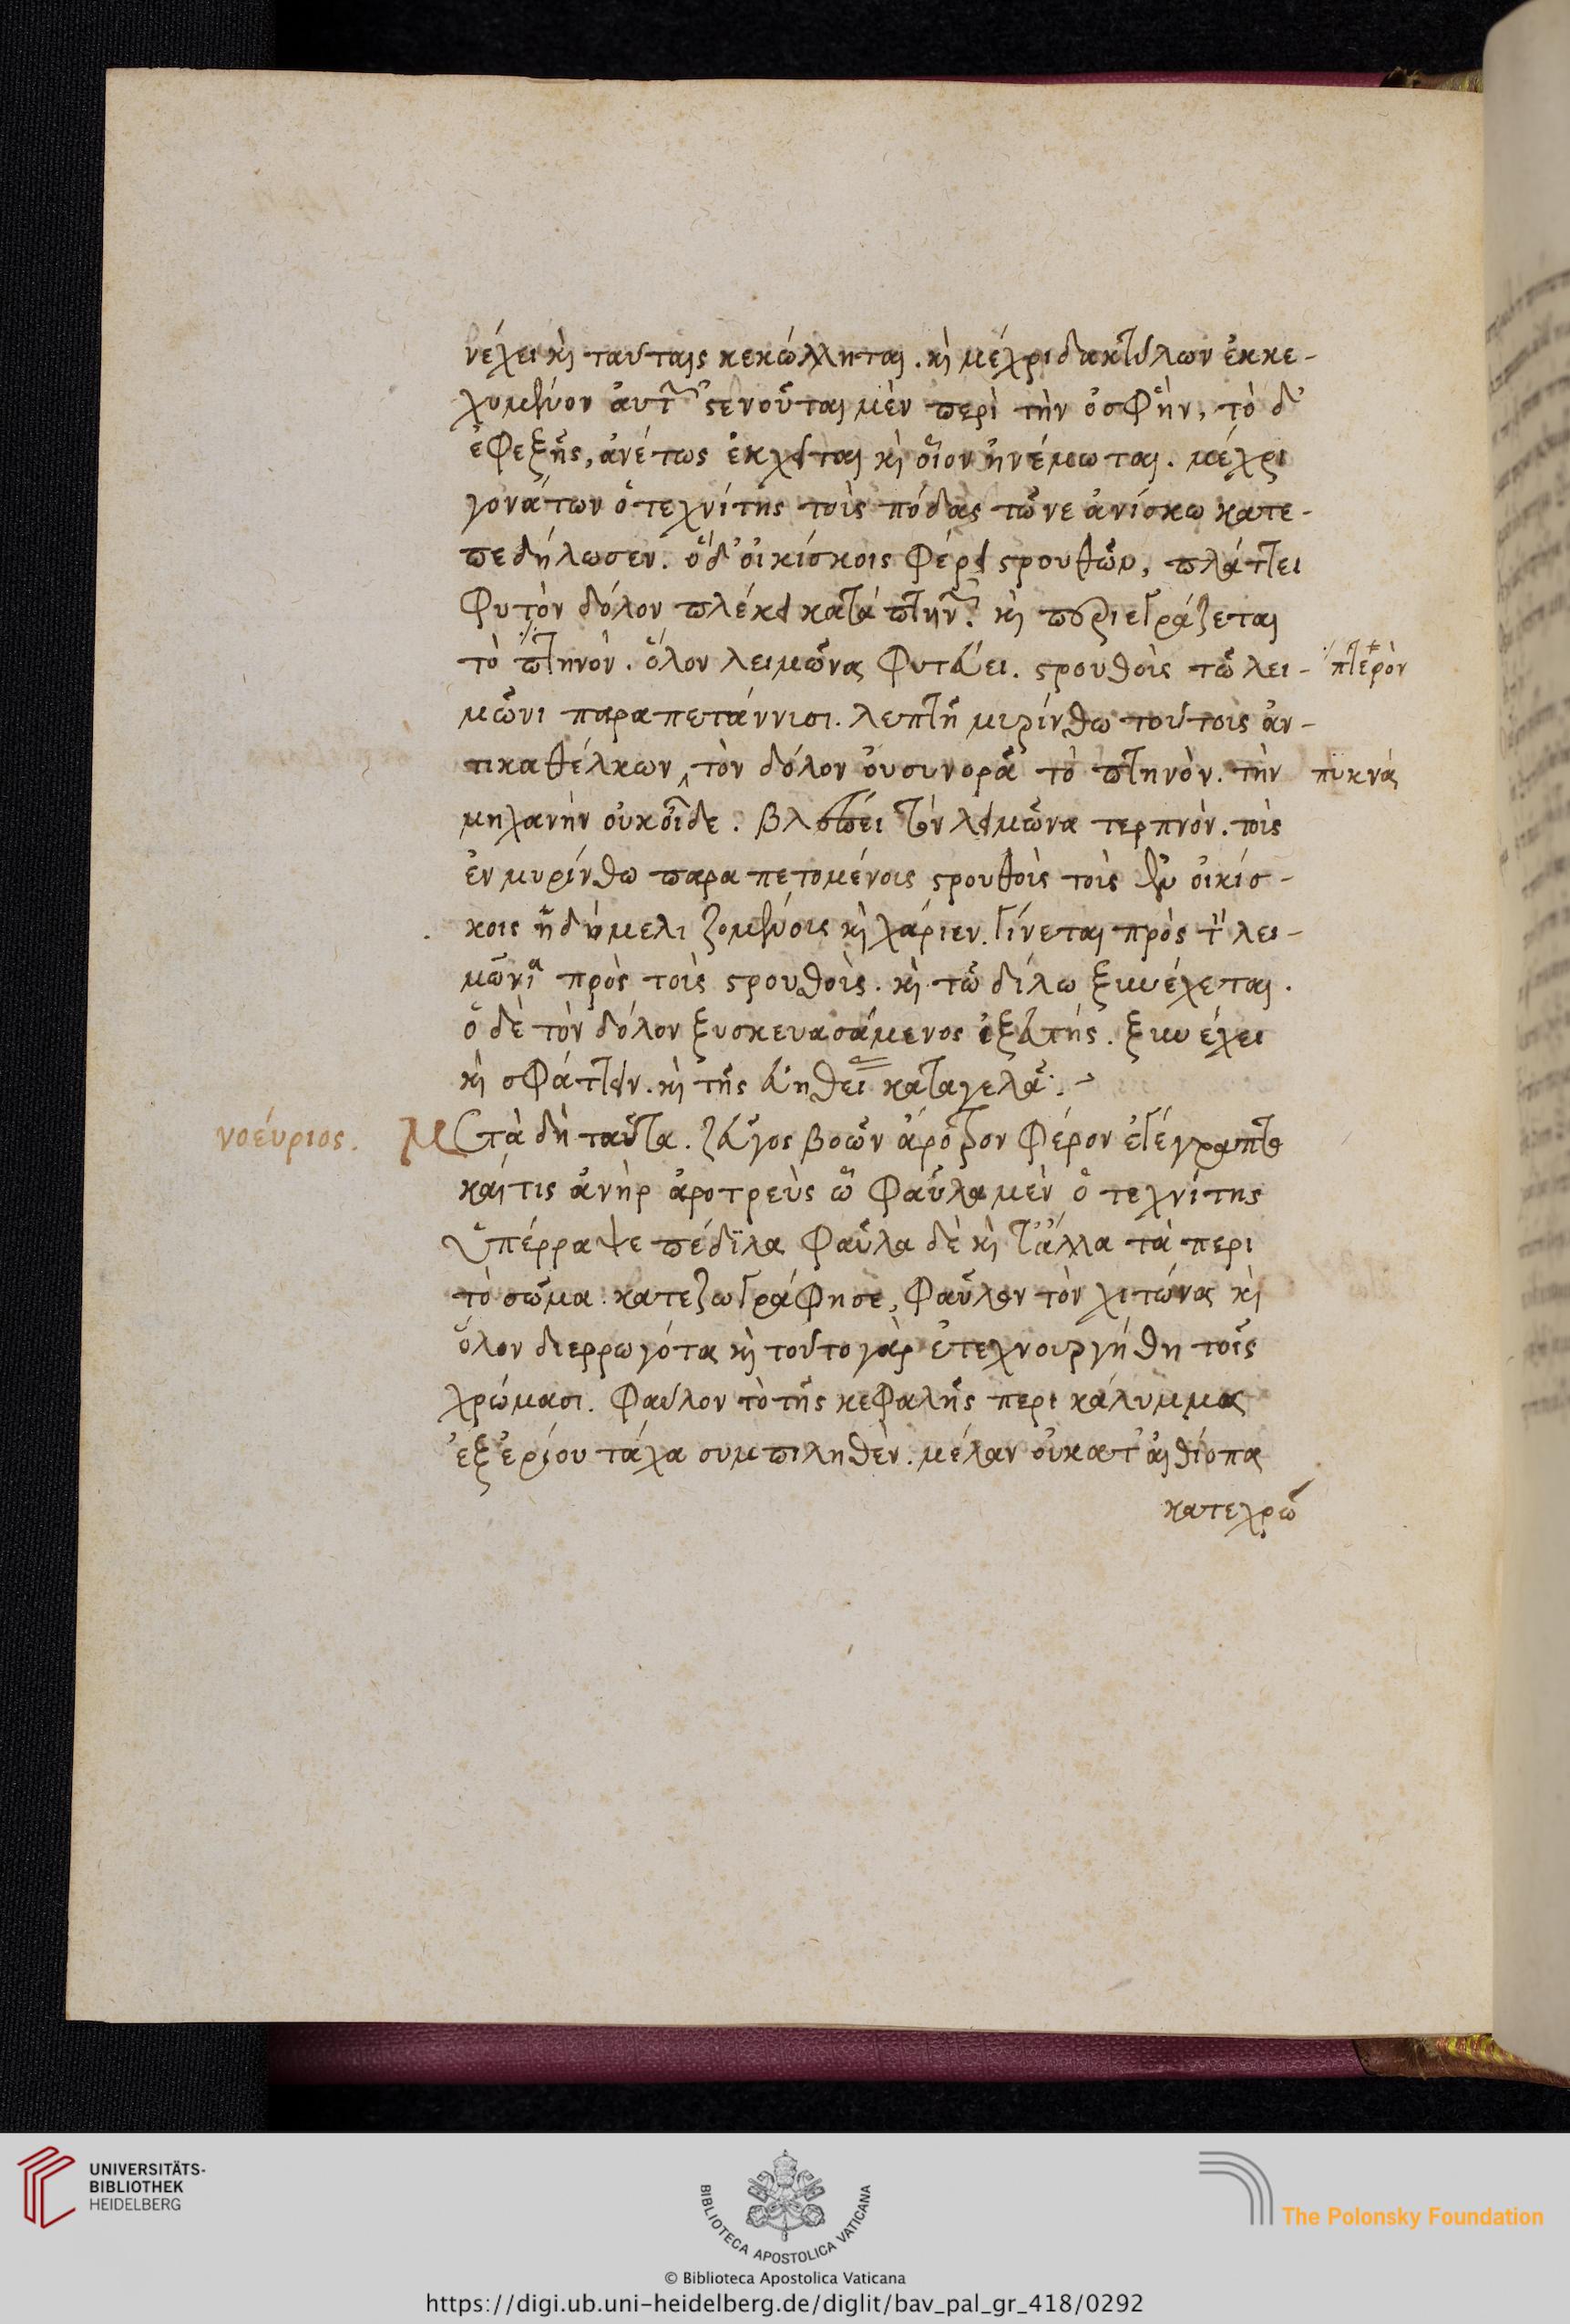 νέχει κὶ ταύταις κεκώλληται. κὶ μέχρι δακτύλων ἐκκε-
χυμένον ἀυτ στενοῦται μὲν περὶ τὴν ὀσφὴν, τὸ δ'
ἐφεξῆς, ἀνέτως ἐκχεῖται κὶ οἷον ἠνέμωται. μέχρι
γονάτων ὁ τεχνίτης τοὶς πόδας τῶ νεανίσκω κατε-
πεδήλωσεν. ὁ δ' οἰκίσκοις φέρει στρουθῶν, πλάττει
φυτὸν δόλον πλέκει κατὰ πτην κὶ περιεργάζεται
τὸ πτηνὸν. ὅλον λειμῶνα φυτεύει. στρουθοὶς τῶ λει-
πτερὸν
μῶνι παραπετάννισι. λεπτῆ μιρίνθω τούτοις ἀν-
τικαθέλκων τὸν δόλον ὀυσυνορᾶ τὸ πτηνὸν. τὴν
πυκνά
μηχανὴν οὐκοῖδε. βλέπει τὸν λειμῶνα τερπνὸν. τοὶς
ἐν μυρίνθω παραπετομένοις στρουθοὶς τοὶς ἐν οἰκίσ-
κοις ἡδὺ μελιζομένοις κὶ χάριεν. γίνεται πρὸς τ λει-
μῶνι πρὸς τοὶς στρουθοὶς. κὶ τῶ δίλω ξυνέχεται.
ὁ δὲ τὸν δόλον ξυσκευασάμενος ἰξευτής. ξυνέχει
κὶ σφάττειν. κὶ τῆς εὐηθεί καταγελᾶ.
νοέυριος.
Μετὰ δὴ ταῦτα. ζεῦγος βοῶν ἄροτρον φέρον ἐτέγραπτο
καί τις ἀνὴρ ἀροτρεὺς ὧ φαῦλα μὲν ὁ τεχνίτης
ὑπέρραψε πέδιλα φαῦλα δὲ κὶ τἄλλα τὰ περι
τὸ σῶμα κατεζωγράφησε, φαῦλον τὸν χιτώνα κὶ
ὅλον διερρωγότα κὶ τούτο γὰρ ἐτεχνουργήθη τοῖς
χρώμασι. φαύλον τὸ τῆς κεφαλῆς περικάλυμμα
ἐξ ἐρίου τάχα συμπιληθὲν. μέλαν οὐκατ' αἰθίοπα
κατεχρω
UNIVERSITÄTS-
BIBLIOTHEK
HEIDELBERG
BIBLIOTECA APOSTOLICA VATICANA
The Polonsky Foundation
© Biblioteca Apostolica Vaticana
https://digi.ub.uni-heidelberg.de/diglit/bav_pal_gr_418/0292